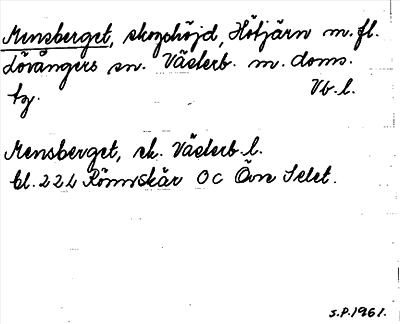 Mensberget, skogshöjd, Hötjärn m.fl.
Lövångers sn. Västerb. m. doms.
tg. Vb.l.
Mensberget, sk. Västerb.l.
bl. 224 Rönnskär OC Övre Selet.
S.P. 1961.